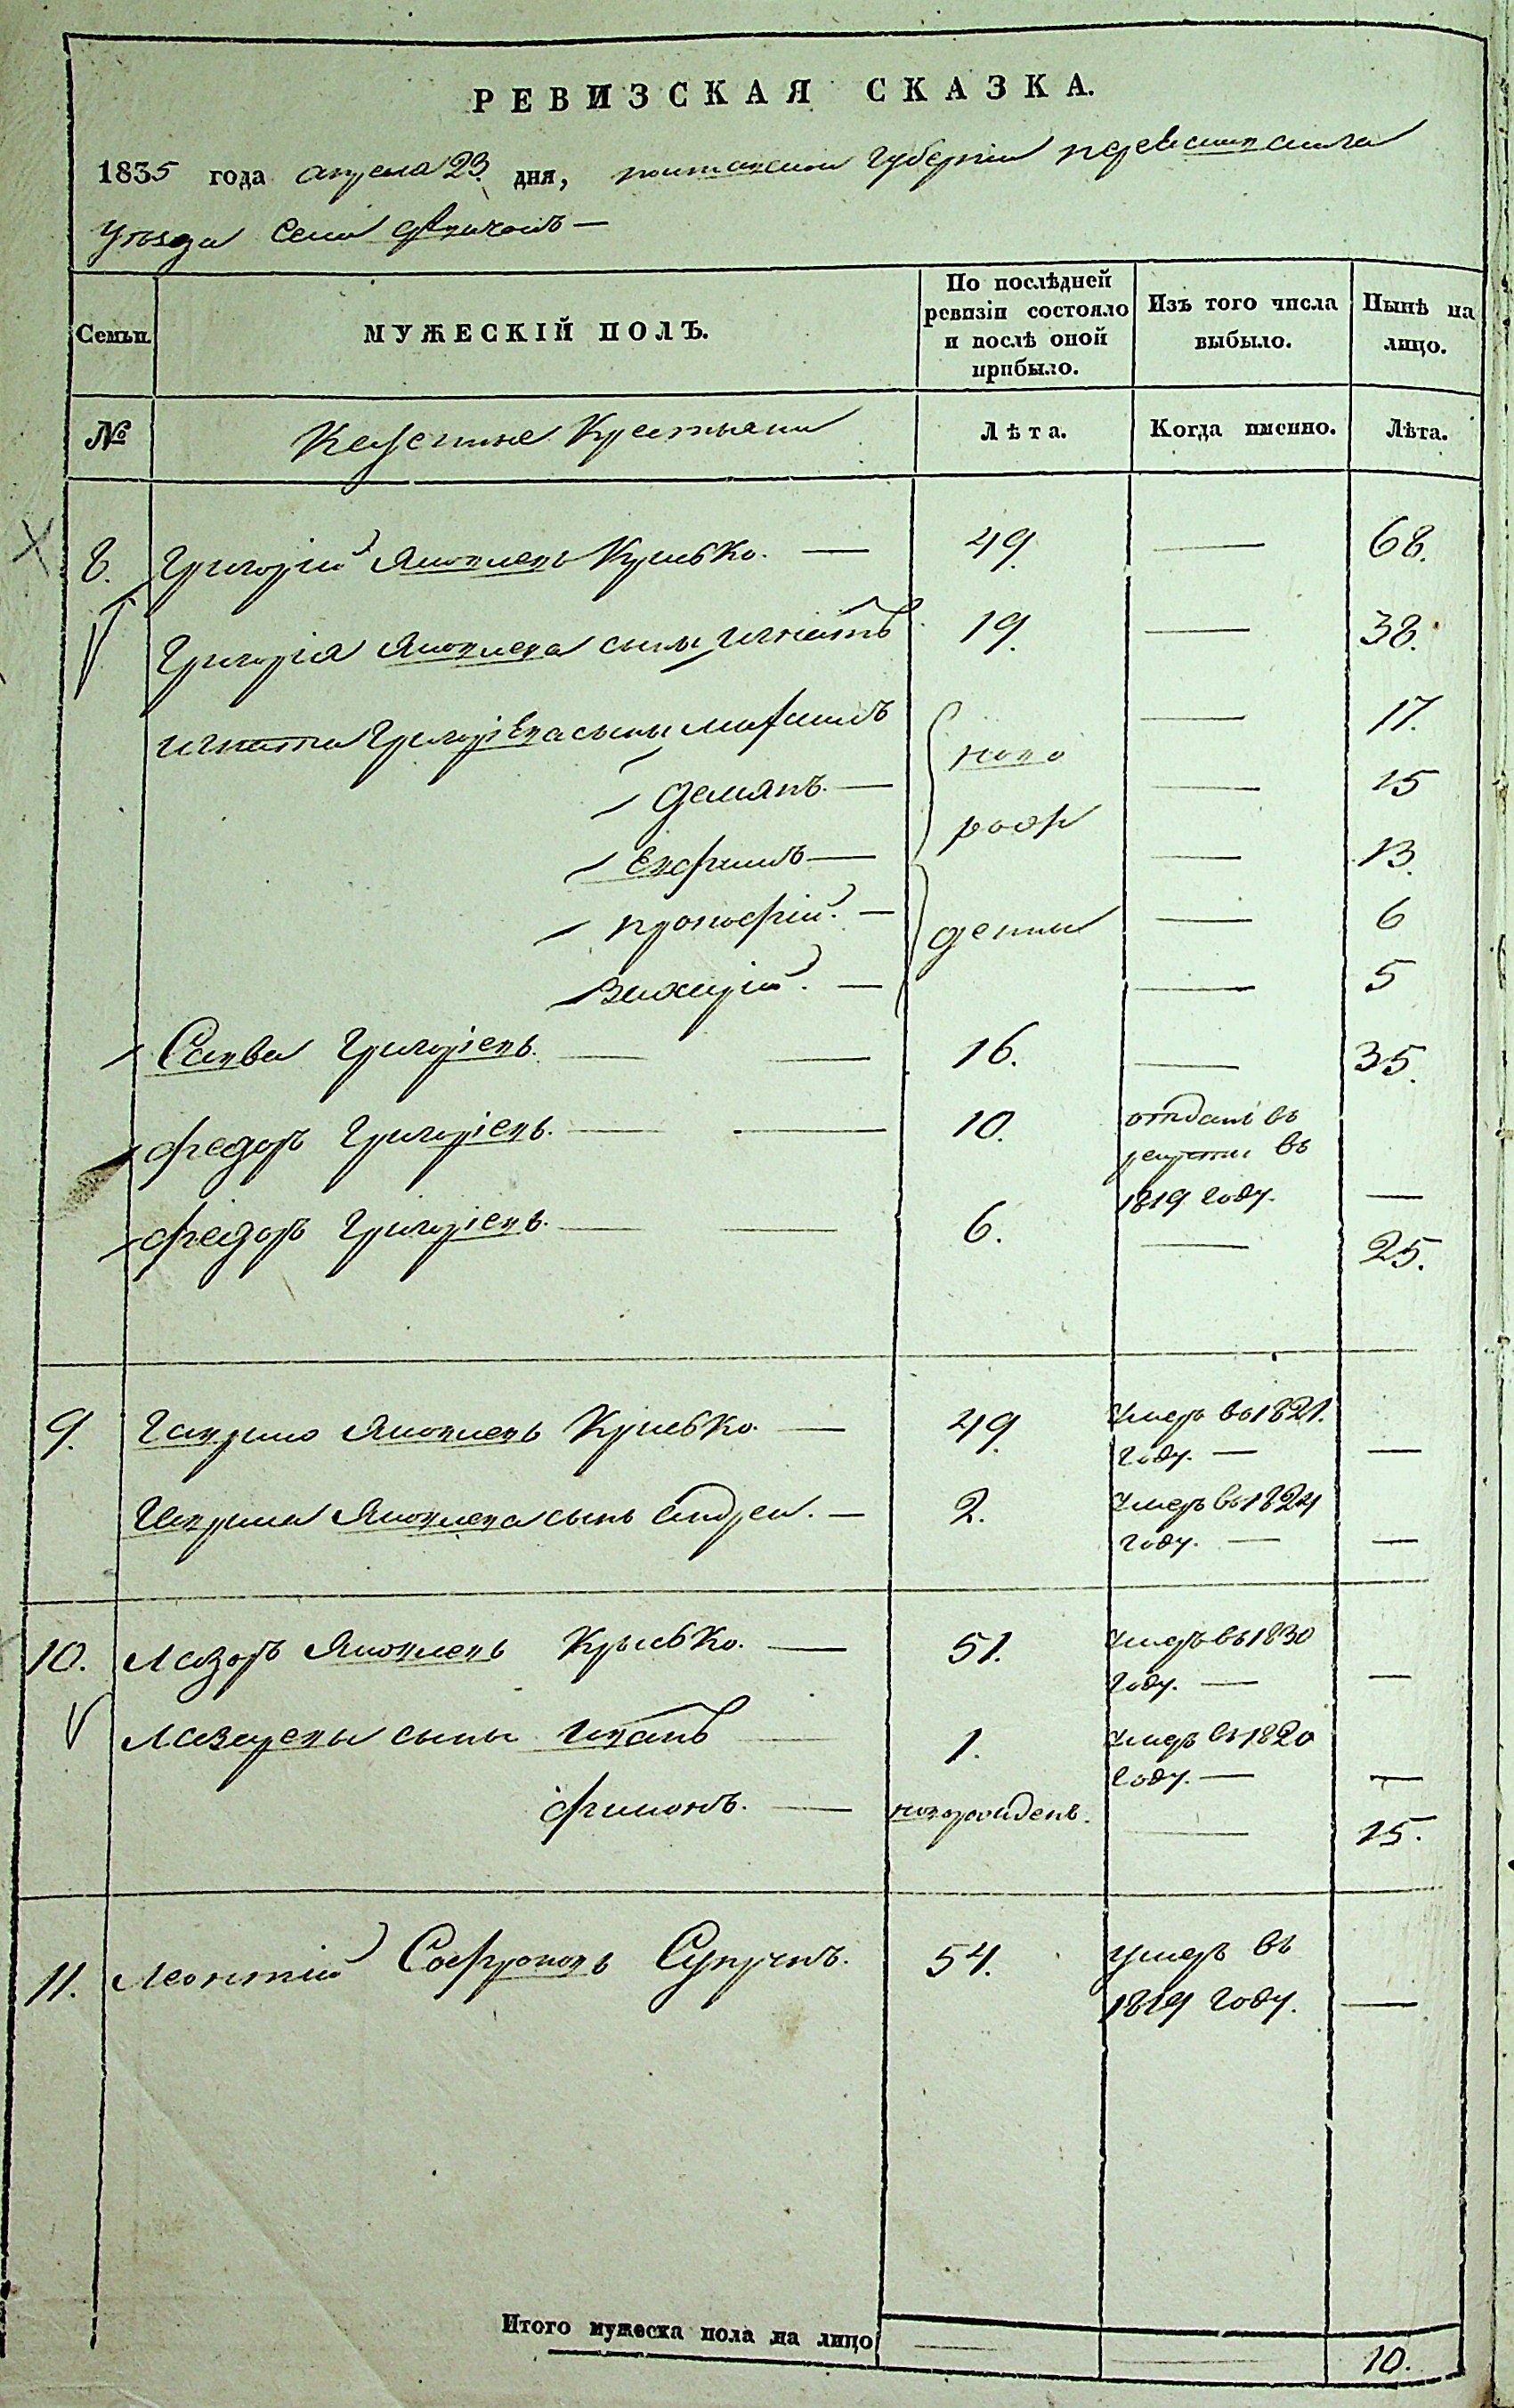 РЕВИЗСКАЯ СКАЗКА.
1835 года апреля 23 дня, полтавской Губернии переяславскаго
уезда села
Семьи. МУЖЕСКІЙ ПОЛЪ. По послѣдней ревизіи состояло и послѣ оной прибыло. Изъ того числа выбыло. Нынѣ на лицо.
№ Казенные Крестьяне Лѣта. Когда именно. Лѣта.
8. Григорій Яковлевъ Кривко. — 49. — 68.
Григорія Яковлева сыны Игнатъ 19. — 38.
Игната Григоріева сыны Максимъ ново — 17.
Демянъ. — рож — 15
Ефимъ — — 13.
Прокофій. — денны — 6
Захарій. — — 5
Савва Григоріевъ. — — 16. — 35.
Федоръ Григоріевъ. — — 10. отданъ въ рекруты въ 1819 году. —
Федоръ Григоріевъ. — — 6. — 25.
9. Гаврило Яковлевъ Кривко. — 49. умеръ въ 1821. году. — —
Гаврила Яковлева сынъ Андрей. — 2. умеръ въ 1824 году. — —
10. Лазоръ Яковлевъ Крывко. — 51. умеръ въ 1830 году. — —
Лазаревы сыны Игнатъ — 1. умеръ въ 1820 году. — —
Филионъ. — новорожденъ. — 15.
11. Леонтій Софроновъ Супрунъ. 54. умеръ въ 1819 году. —
Итого мужеска пола на лицо — — 10.